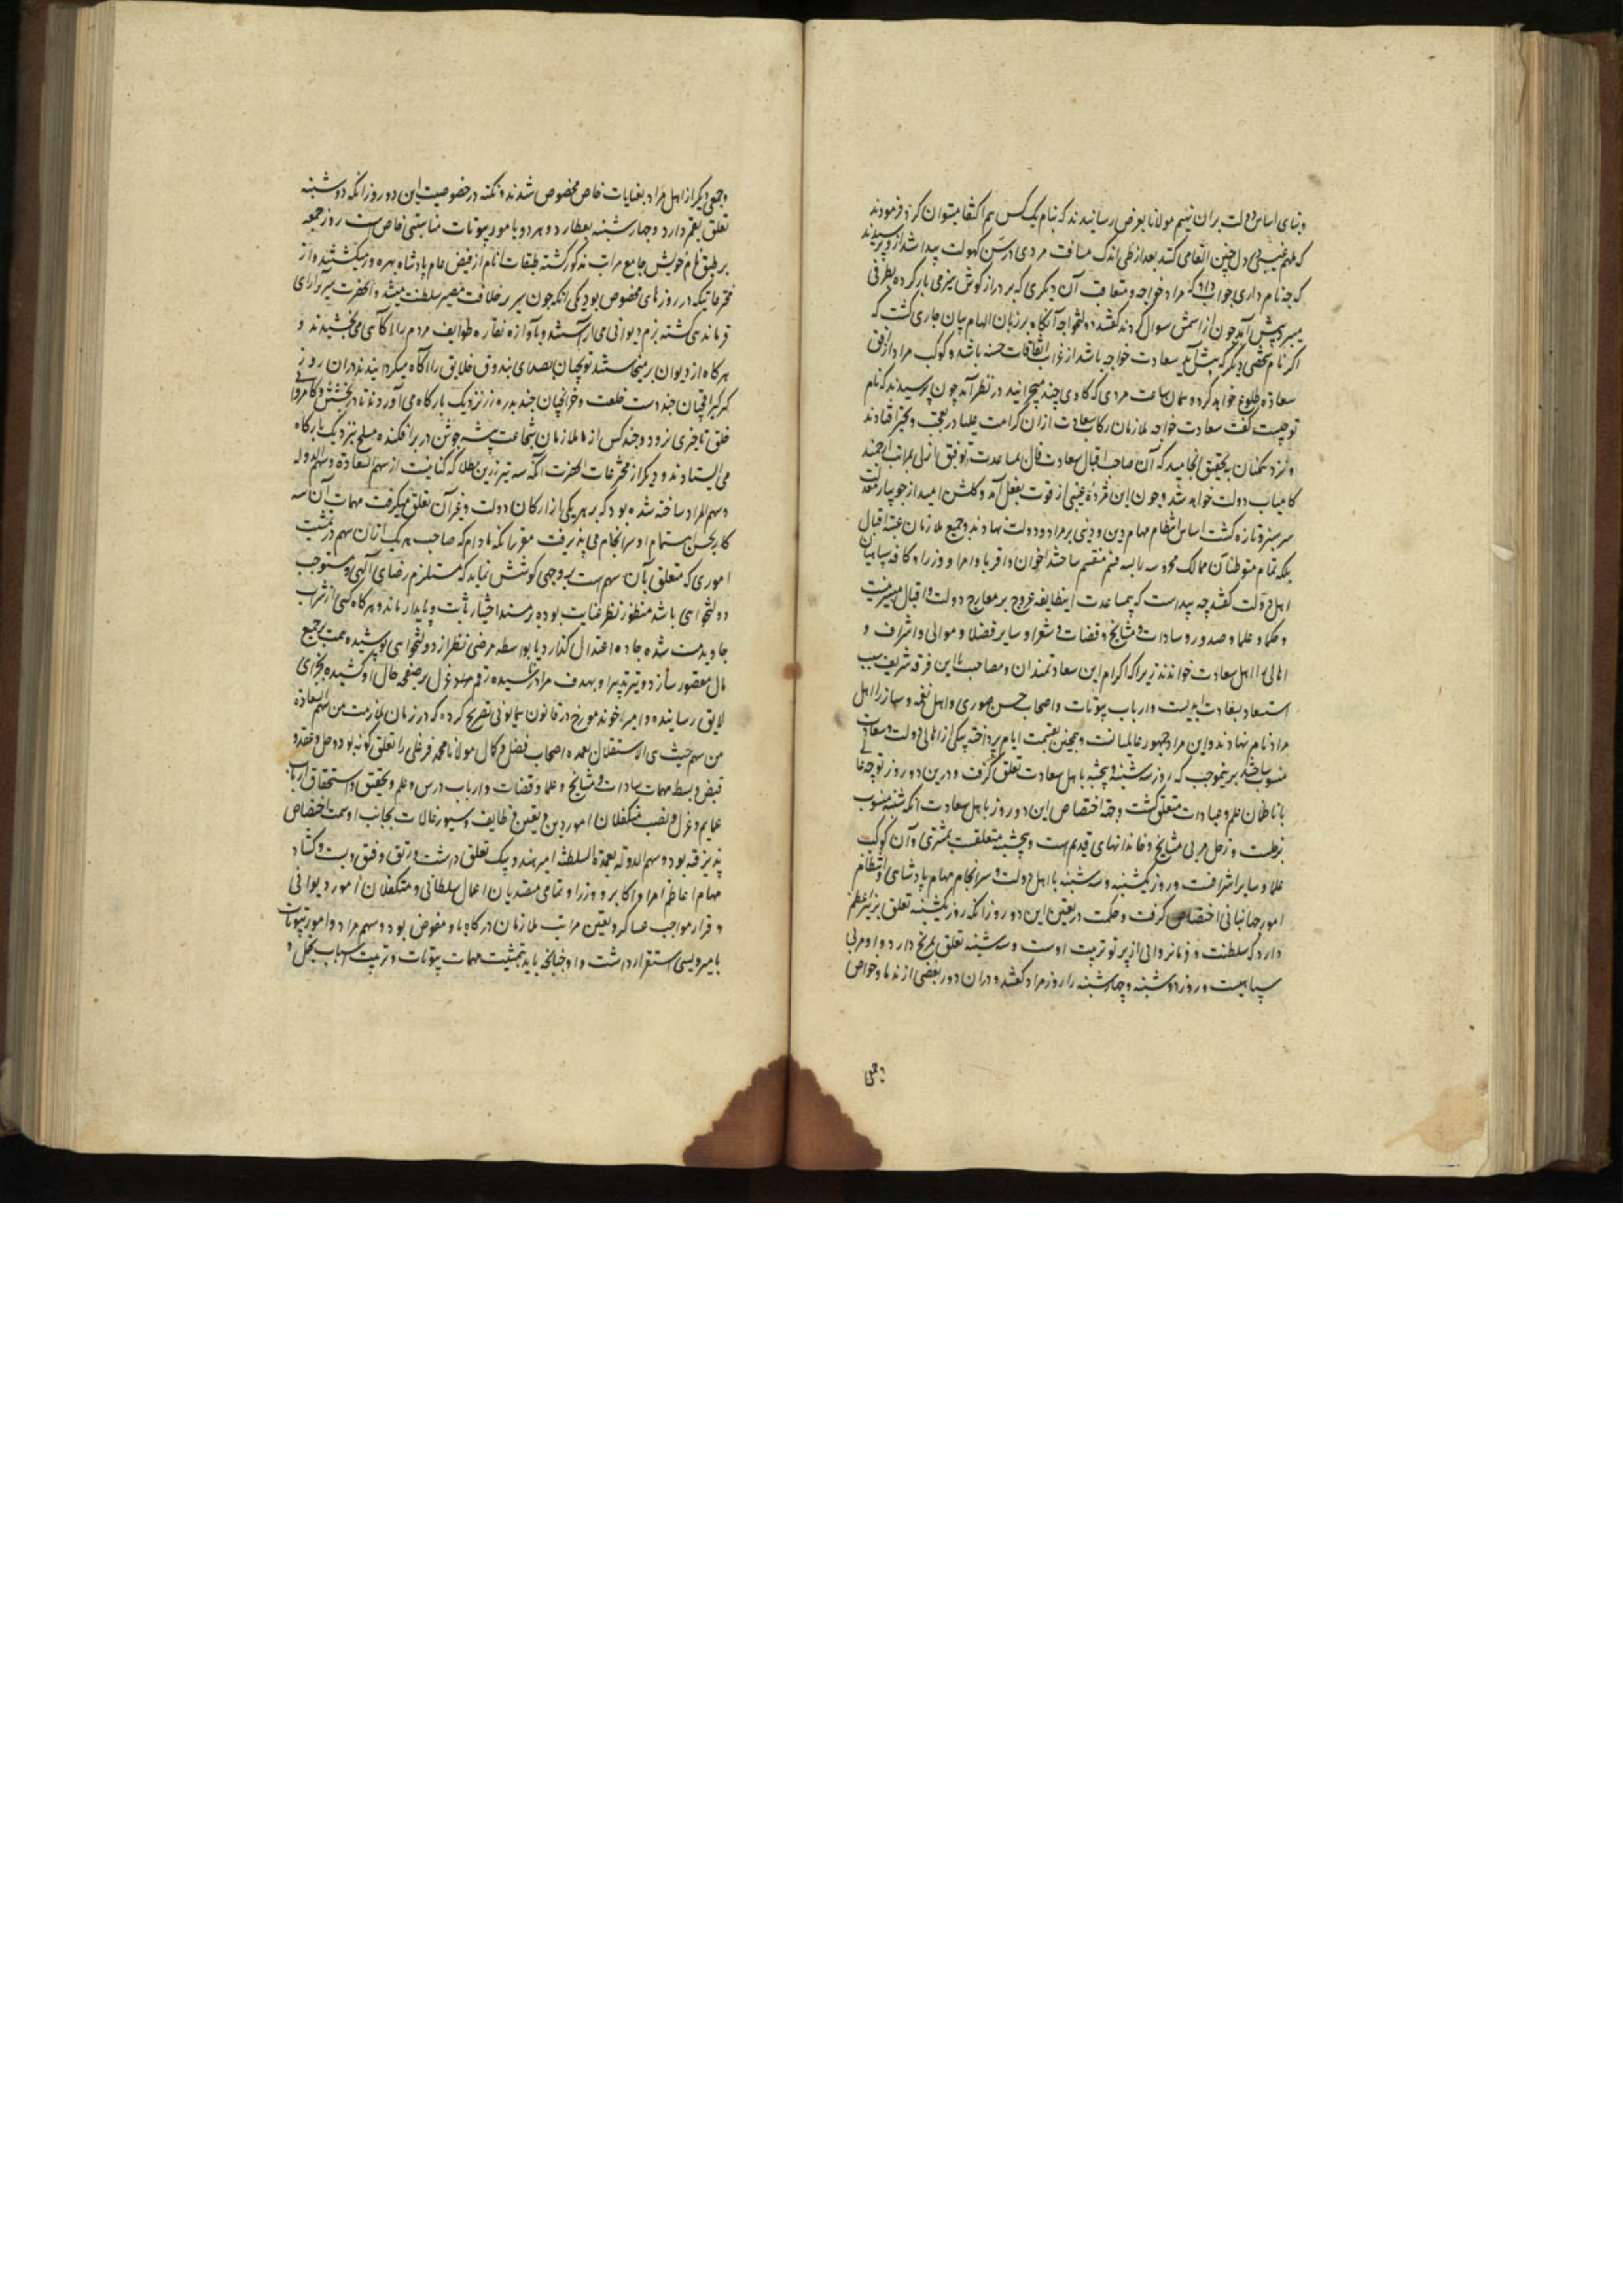 و بنای اساس دولت بران نهیم مولانا بعرض رسانیدند که بنام یک کس هم اکتفا میتوان کرد فرمودند
که ملهم غیبی در دل چنین القا می کند بعد از طی اندک مسافت مردی در سن کهولت پیدا شد ازو پرسیدند
که چه نام داری جواب داد که مراد خواجه و متعاقب آن دیگری که بر دراز کوش هیزم بار کرده بطرفی
میبرد پیش آمد چون از اسمش سوال کردند کفت دولتخواجه آنکاه بر زبان الهام بیان جاری کشت که
اکر نام شخصی دیگر که پیش آید سعادت خواجه باشد از غرایب اتفاقات حسنه باشد و کوکب مراد از افق
سعادت طلوع خواهد کرد و همان ساعت مردی که کاوی چند میچرانید در نظر آمد چون پرسیدند که نام
تو چیست کفت سعادت خواجه ملازمان رکاب سعادت ازان کرامت علیا در تعجب و تحیر افتادند
و نزد همکنان به تحقیق انجامید که آن صاحب اقبال سعادت فال بمساعدت توفیق ازلی بمراتب ارجمند
کامیاب دولت خواهد شد و چون این مژدهٔ غیبی از قوت بفعل آمد و کلشن امید از جویبار معدلت
سرسبز و تازه کشت اساس انتظام مهام دین و دنیی بر مراد و دولت نهادند و جمیع ملازمان عتبه اقبال
بلکه تمام متوطنان ممالک محروسه را بسه قسم منقسم ساختند اخوان و اقربا و امرا و وزرا و کافه سپاهیان
اهل دولت کفتند چه پیداست که بمساعدت اینطایفه عروج بر معارج دولت و اقبال میسر نیست
و حکما و علما و صدور و سادات و مشایخ و قضات و شعرا و سایر فضلا و موالی و اشراف و
اهالی را اهل سعادت خواندند زیرا که اکرام این سعادتمندان و مصاحبت با این فرقه شریف سبب
استسعاد بسعادت ابدیست و ارباب بیوتات و اصحاب حسن صوری و اهل نغمه و ساز را اهل
مراد نام نهادند و این مراد جمهور عالمیانست و همچنین بقسمت ایام پرداخته هر یکی از اهالی دولت و سعادت
منسوب ساختند برینموجب که روز شنبه و پنجشنبه باهل سعادت تعلق کرفت و درین دو روز توجه عالی
بانتظام علم و عبادت متعلق کشت و جهة اختصاص این دو روز باهل سعادت آنکه شنبه منسوب
بزحلست و زحل مربی مشایخ و خاندانهای قدیم است و پنجشنبه متعلقست بمشتری و آن کوکب
علما و سایر اشرافست و روز یکشنبه و سه شنبه با اهل دولت و سرانجام مهام پادشاهی و انتظام
امور جهانبانی اختصاص کرفت و حکمت در تعیین این دو روز آنکه روز یکشنبه تعلق بنیر اعظم
دارد که سلطنت و فرمانروایی از پرتو تربیت اوست و سه شنبه تعلق بمریخ دارد و او مربی
سپاهیست و روز دوشنبه و چهارشنبه را روز مراد کفتند و دران دو روز بعضی از ندما و خواص
وجمعی
وجمعی دیکر از اهل مراد بعنایات خاص مخصوص شدند و نکته در خصوصیت این دو روز آنکه دوشنبه
تعلق بقمر دارد و چهارشنبه بعطارد و هر دو با مور بیوتات مناسبتی خاص است روز جمعه
بر طبق نام خویش جامع مراتب مذکور کشته طبقات انام از فیض عام پادشاه بهره ور میکشتند و از
مخترعاتیکه در روزهای مخصوص بود یکی آنکه چون سریر خلافت مصیر سلطنت میشد و آنحضرت سریرآرای
فرماندهی کشته بزم دیوانی می آراستند و بآوازه نقاره طوایف مردم را آکاهی می بخشیدند و
هرکاه از دیوان برمیخاستند توپچیان بصدای بندوق خلایق را آکاه میکردانیدند دران روز
کرکیراقچیان چند دست خلعت و خزانچیان چند بدره زر نزدیک بارکاه می آوردند تا در بخشش و کامروایی
خلق تاخیری نرود و چند کس از ملازمان شجاعت پیشه جوشن در بر افکنده مسلح نزدیک بارکاه
می ایستادند و دیکر از مخترعات آنحضرت آنکه سه تیر زرین بطلا که کنایتست از سهم السعادة و سهم الدوله
و سهم المراد ساخته شده بود که هر یکی از ارکان دولت و غیر آن تعلق میکرفت مهمات آن سه
کار بحسن اهتمام او سرانجام می پذیرفت مقرر آنکه مادام که صاحب هر یک ازان سهم در تمشیت
اموری که متعلق بآن سهم است بروجهی کوشش نماید که مستلزم رضای الهی و مستوجب
دولتخواهی باشد منظور نظر عنایت بوده بر مسند اختیار ثابت و پایدار ماند و هرکاه کسی از شراب
جاه بدمست شده جاده اعتدال کذارد یا بواسطه مرض نظر از دولتخواهی پوشیده همت بر جمع
مال مقصور سازد و تیر تدبیر او بهدف مراد نرسیده رقم عزل بر صفحه حال او کشیده بجزای
لایق رسانیده و امیر خوند مورخ در قانون همایونی تصریح کرده که در زمان ملازمت من سهم السعادة
من حیث الاستقلال بعمده اصحاب فضل و کمال مولانا محمد فرغلی را تعلق کرفته بود و حل و عقد و
قبض و بسط مهمات سادات و مشایخ و علما و قضات و ارباب درس و علم و تحقیق و استحقاق ارباب
عمایم و عزل و نصب متکفلان امور دین و تعیین وظایف و سیورغالات بجانب او سمت اختصاص
پذیرفته بود و سهم الدوله بعمدة السلطنه امیر هندو بیک تعلق داشت و رتق و فتق و بست و کشاد
مهام اعاظم امرا و اکابر و وزرا و تمامی متصدیان اعمال سلطانی و متکفلان امور دیوانی
و قرار مواجب عساکر و تعیین مراتب ملازمان درکاه باو مفوض بود و سهم مراد و امور بیوتات
بامیر ویسی استقرار داشت و او چنانچه باید بتمشیت مهمات بیوتات و ترتیب اسباب تجمل و